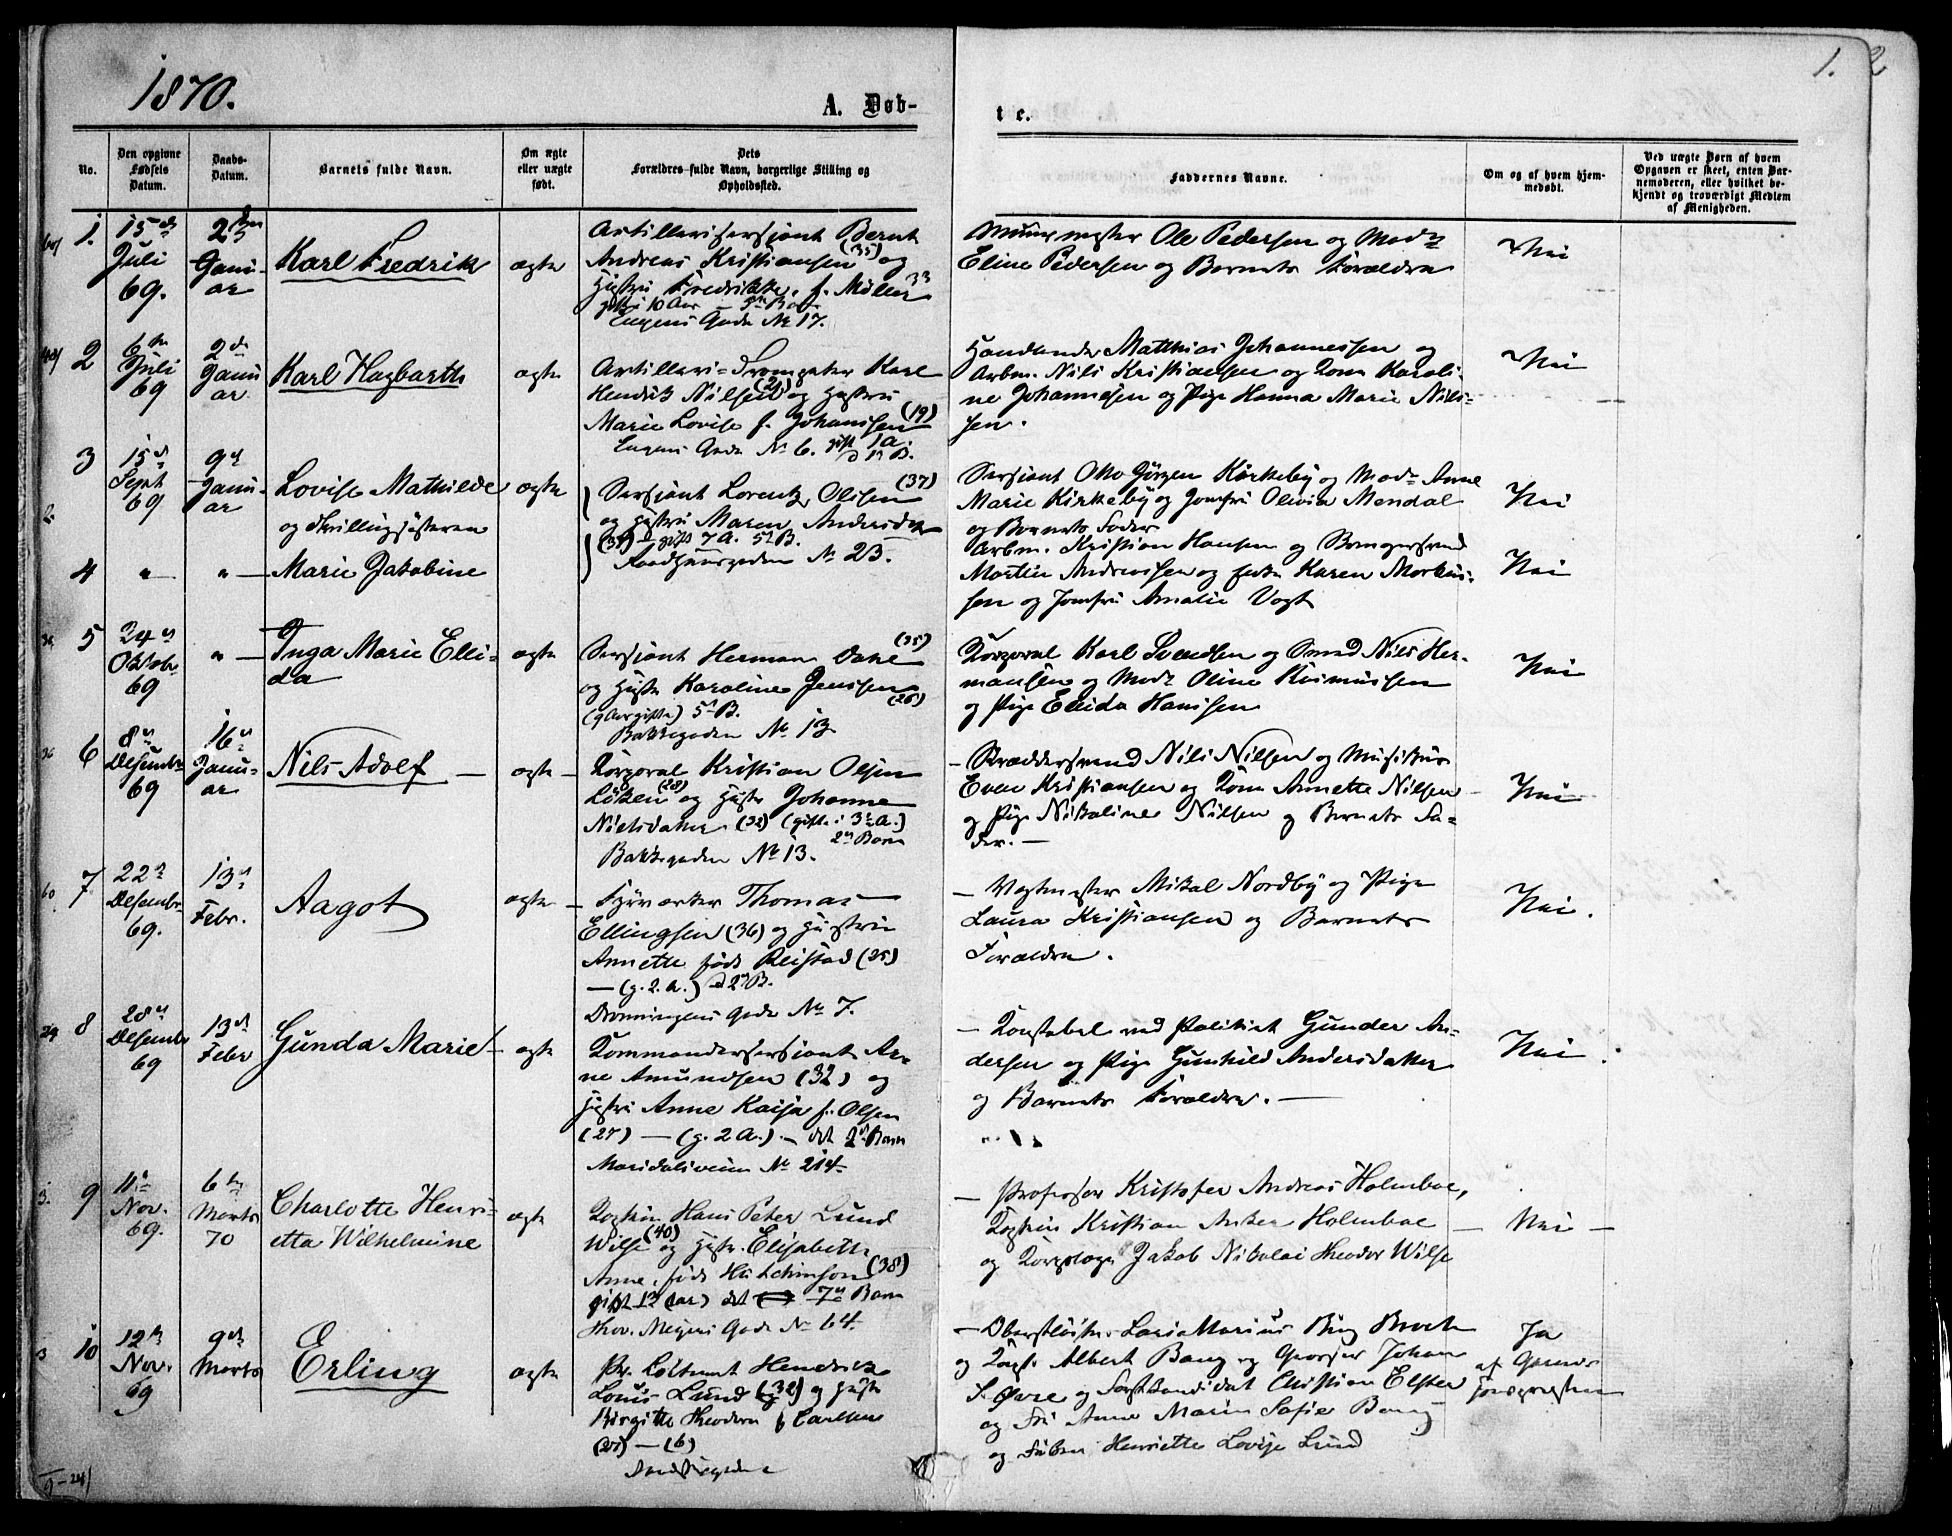 1870.
1. 2
A. Døb-
t e.
No.
Den opgivne Fødsels Datum.
Daabs-Datum.
Barnets fulde Navn.
Om ægte eller uægte født.
Dets Forældres fulde Navn, borgerlige Stilling og Opholdssted.
Faddernes Navne.
Om og af hvem hjem-
medøbt.
Ved uægte Børn af hvem
Opgaven er skeet, enten Bar-
nemoderen, eller hvilket be-
kjendt og troværdigt Medlem
af Menigheden.
1.
15de Juli 69.
2den Janu-
ar
Karl Fredrik
ægte
Artillerisersjant Bernt
Andreas Kristiansen (35) og
Hustru Fredrikke f. Møller 33
gift i 10 Aar
Eugens Gade No 17.
Murmester Ole Pedersen og Mad.
Eline Pedersen og Barnets Forældre
Nei
2
6te Juli 69
2den Janu
ar
Karl Hagbarth
ægte
Artilleri-
Henrik Nilsen og Hustru
Marie Lovise f. Johansen (19)
Eugens Gade No 6. gift 1 a.
Handlende Matthias Johannessen og
Arbm. Nils Kristiansen og Kone Karoli-
ne Johannesen og Pige Hanna Marie Nils-
sen.
Nei
3
15de Sept 69
9de Janu-
ar
Lovise Mathilde
og tvillingsøsteren
ægte
Sersjant Lorentz Olsen (37)
og Hustru Maren Andersdtr
gift 7 A. 5te B.
Raadhusgaden No 23.
Sersjant Otto Jørgen Kirkeby og Mad. Anne
Marie Kirkeby og Jomfru Olivia Mendal
og Barnets Fader
Nei
4
" — " —
Marie Jakobine
Arbm. Kristian Hansen og
Martin Andreassen og Karen
sen og Jomfru Amalie Vogt
Nei
5
24de Oktobr 69
" —
Inga Marie Elli-
da
ægte
Sersjant Herman (35)
og Hustr Karoline Jenssen
(9 Aar gifte) 5te B.
Bakkegaden No 13
Korporal Karl Svendsen og Smed Nils Her-
mansen og Mad. Oline Rasmussen
og Pige Elida Hansen
Nei
6
8de Desembr 69
16de Janu-
ar
Nils Adolf —
ægte —
Korporal Kristian Olsen
Løken (28) og Hustr Johanne
Nielsdatter (32) (gifte i 3 A.)
2det Barn
Bakkegaden No 13.
— Skræddersvend Nils Nilsen og Musikus
Even Kristiansen og Kone Annette Nilsen
og Pige Nikoline Nilsen og Barnets Fa-
der. —
Nei
7
22de Desembr 69.
13de Febr.
Aagot
ægte —
Fyrverker Thomas
Ellingsen (36) og Hustru
Annette født Reistad (25)
— (g. 2. a.) 2det B.
Dronningens Gade No 7.
— Vagtmester Mikal Nordby og Pige
Laura Kristiansen og Barnets
Forældre.
Nei.
8
28de Desembr 69
13de Febr
Gunda Marie —
ægte
Kommandersersjant Ar-
ne Amundsen (32) og
Hustru Anne Kaisa f. Olsen
(27) — (g. 2 a.) — det 2det Barn
Maridalsveien No 214.
— Konstabel ved Politiet Gunder An-
dersen og Pige Gunhild Andersdatter
og Barnets Forældre. —
Nei
9
11te Nov. 69.
6te Marts 70
Charlotte Henri-
etta Wilhelmine
ægte
Kaptein Hans Peter Lund
Wilse (40) og Hustr. Elisabeth
Anne, født Hutchinson (38)
gift 13 (aar) det 7de Barn
Thv. Meyers Gade No 64.
— Professor Kristofer Andreas Holmboe,
Kaptein Kristian Anker Holmboe
og Korpslæge Jakob Nikolai Theodor Wilse
— Nei —
10
12te Nov. 69
9de Marts
Erling
ægte
Pr. Løitnant Hendrik
Louis Lund (32) og Hustr
Birgitte Theodora f. Carlsen
— (6)
— Oberstløitn. Lars Marius Bing Broch
og Kapt. Albert Bang og Grosser Johan
S. Øvre og Forstkandidat Christian Elster
og Fru Anne Marie Sofie Bang
og Frøken Henriette Lovise Lund
Ja
af